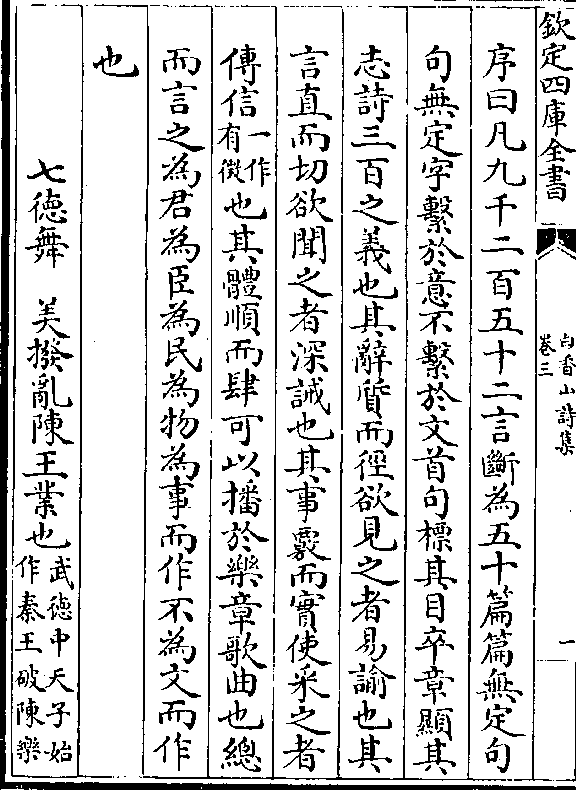 欽定四庫全書
白香山詩集
卷三
一
序曰凡九千二百五十二言斷為五十篇篇無定句
句無定字繫於意不繫於文首句標其目卒章顯其
志詩三百之義也其辭質而徑欲見之者易諭也其
言直而切欲聞之者深誡也其事覈而實使采之者
傳信一作有徵也其體順而肆可以播於樂章歌曲也總
而言之為君為臣為民為物為事而作不為文而作
也
七德舞　美撥亂陳王業也武德中天子始作秦王破陳樂